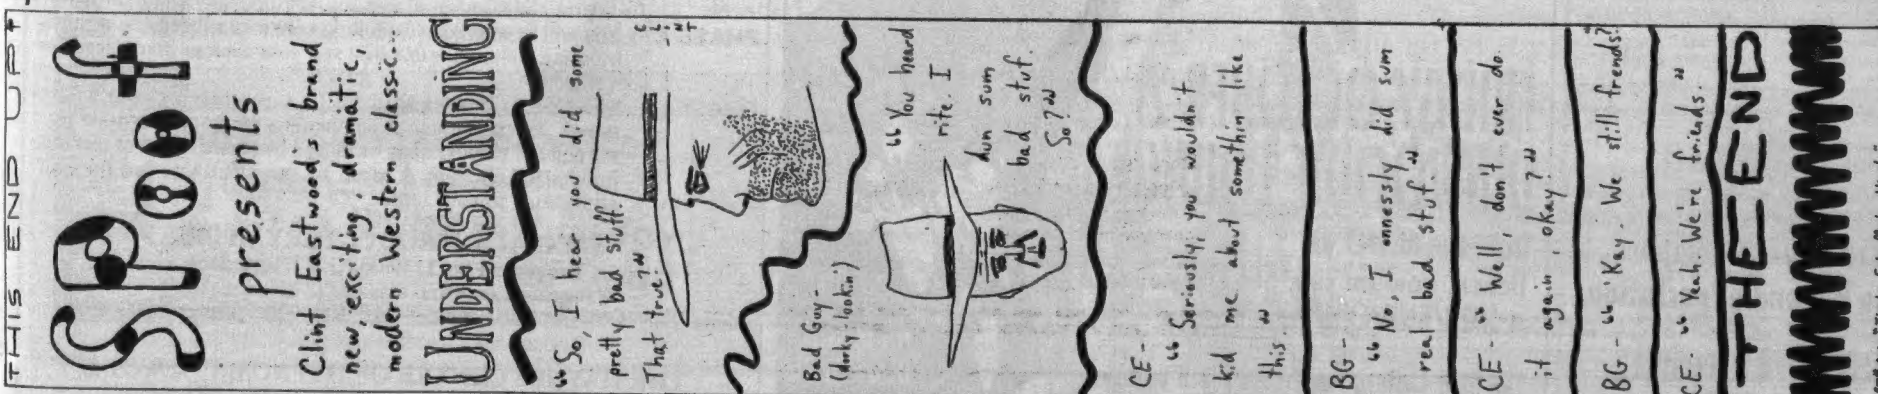 THIS END UP↑
Spoof
presents
Clint Eastwood's brand
new, exciting, dramatic,
modern Western classic...
UNDERSTANDING
"So, I hear you did some
pretty bad stuff.
That true?"
CLINT
Bad Guy -
(dorky-lookin')
"You heard
rite. I
dun sum
bad stuf.
So?"
CE -
"Seriously, you wouldn't
kid me about somethin like
this."
BG -
"No, I onnessly did sum
real bad stuf."
CE - "Well, don't ever do
it again, okay?"
BG - "'Kay. We still frends?"
CE - "Yeah. We're friends."
THE END